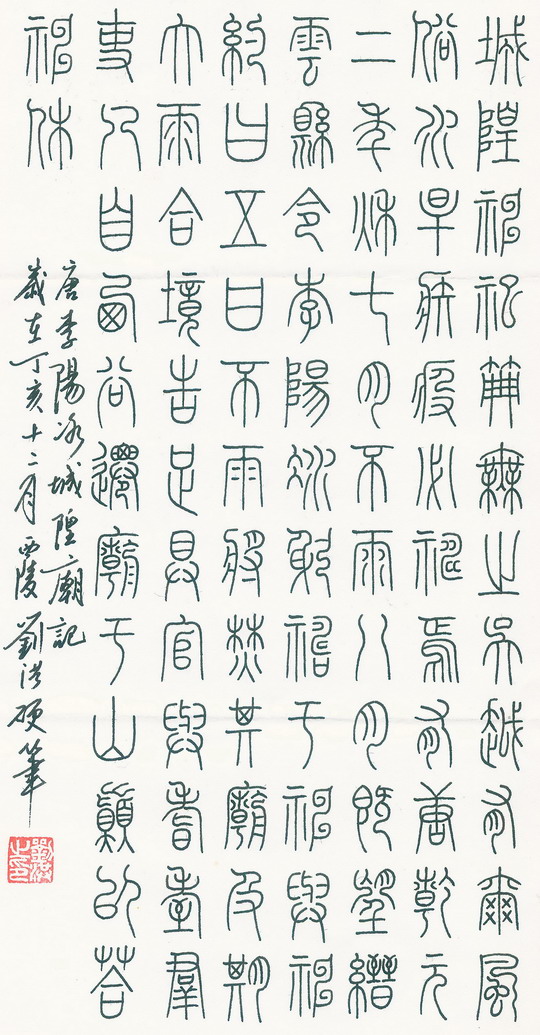 城隍神祀典無之吳越有爾風
俗水旱疾疫必禱焉有唐乾元
二年秋七月不雨八月既望縉
雲縣令李陽冰躬祈于神與神
約曰五日不雨將焚其廟及期
大雨合境告足具官與耆耋群
吏乃自西谷遷廟于山巔以答
神休
唐李陽冰城隍廟記
歲在丁亥十二月西陵劉洪硬筆